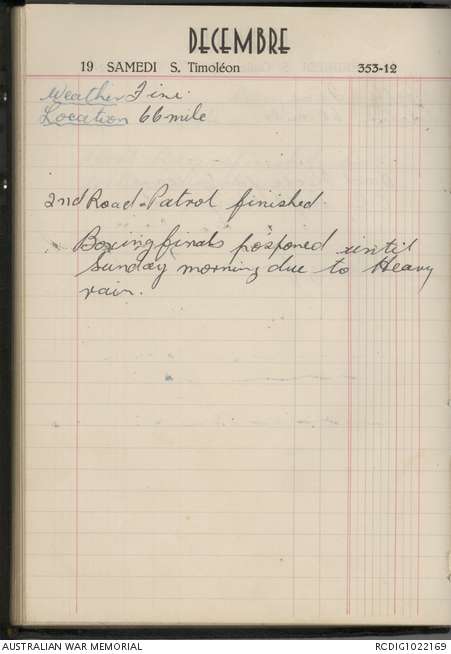 DECEMBRE
19 SAMEDI S. Timoléon 353-12
Weather Fine.
Location 66 mile
2nd Road-Patrol finished.
Boxing finals posponed until
Sunday morning due to Heavy
rain.
AUSTRALIAN WAR MEMORIAL RCDIG1022169